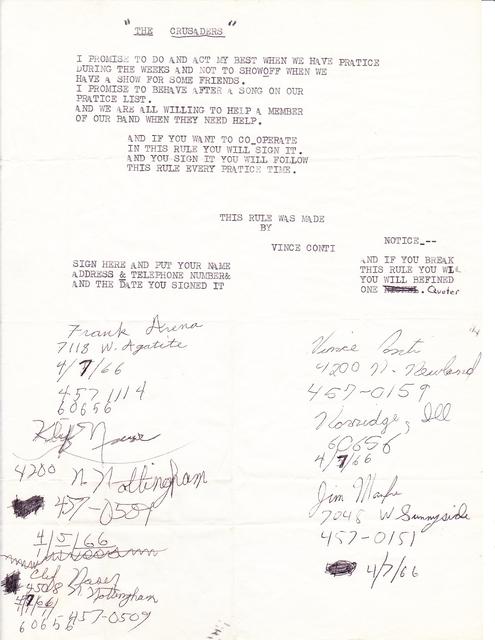 "THE CRUSADERS"
I PROMISE TO DO AND ACT MY BEST WHEN WE HAVE PRATICE
DURING THE WEEKS AND NOT TO SHOWOFF WHEN WE
HAVE A SHOW FOR SOME FRIENDS.
I PROMISE TO BEHAVE AFTER A SONG ON OUR
PRATICE LIST.
AND WE ARE ALL WILLING TO HELP A MEMBER
OF OUR BAND WHEN THEY NEED HELP.
AND IF YOU WANT TO CO_OPERATE
IN THIS RULE YOU WILL SIGN IT.
AND YOU SIGN IT YOU WILL FOLLOW
THIS RULE EVERY PRATICE TIME.
THIS RULE WAS MADE
BY
VINCE CONTI
NOTICE_--
AND IF YOU BREAK
THIS RULE YOU WL
YOU WILL BEFINED
ONE . Quater
SIGN HERE AND PUT YOUR NAME
ADDRESS & TELEPHONE NUMBER&
AND THE DATE YOU SIGNED IT
Frank Arena
7118 W. Agatite
4/7/66
457 1114
60656
4200 N Nottingham
457-0509
4/5/66
Clef
4508 N Nottingham
4/7/66
60656 457-0509
Vince Conti
4200 N. Newland
457-0159
Norridge, Ill
60656
4/7/66
Jim
7045 W Sunnyside
457-0151
4/7/66